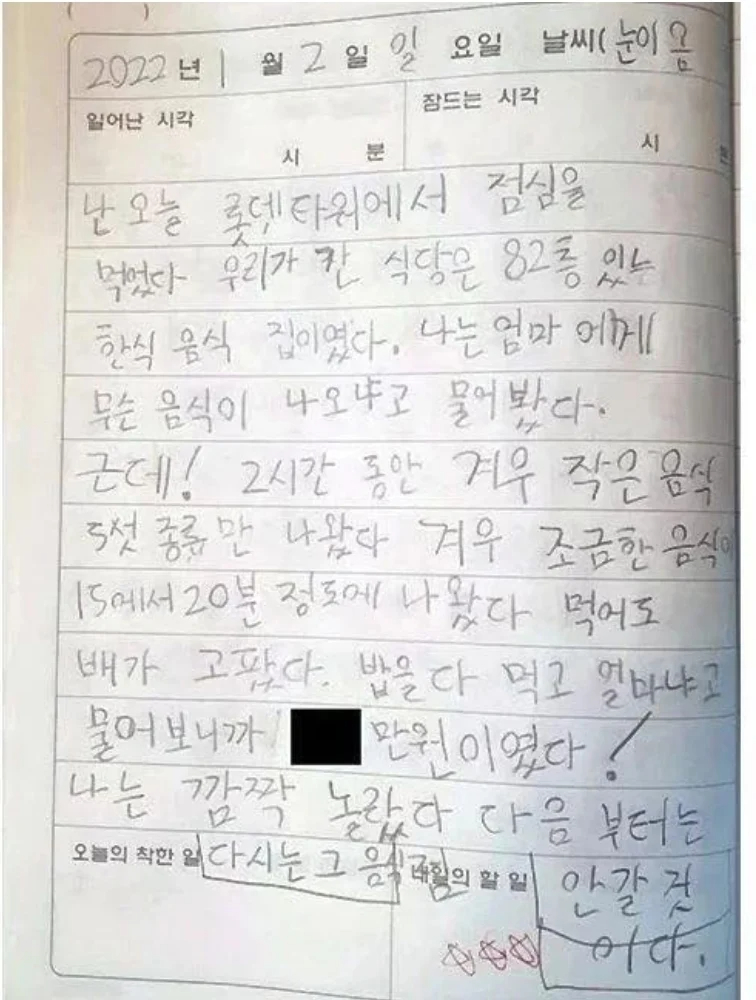 ( )
2022년 1월 2일 일요일 날씨( 눈이 옴
일어난 시각 시 분 잠드는 시각 시
난 오늘 롯데타워에서 점심을
먹었다 우리가 간 식당은 82층 있는
한식 음식 집이였다. 나는 엄마 에게
무슨 음식이 나오냐고 물어봤다.
근데! 2시간 동안 겨우 작은 음식
5섯 종류만 나왔다 겨우 조금한 음식이
15에서 20분 정도에 나왔다 먹어도
배가 고팠다. 밥을 다 먹고 얼마냐고
물어보니까 만원이였다!
나는 깜짝 놀랐다 다음 부터는
오늘의 착한 일 다시는 그 음식 내일의 할 일 안갈 것
이다.